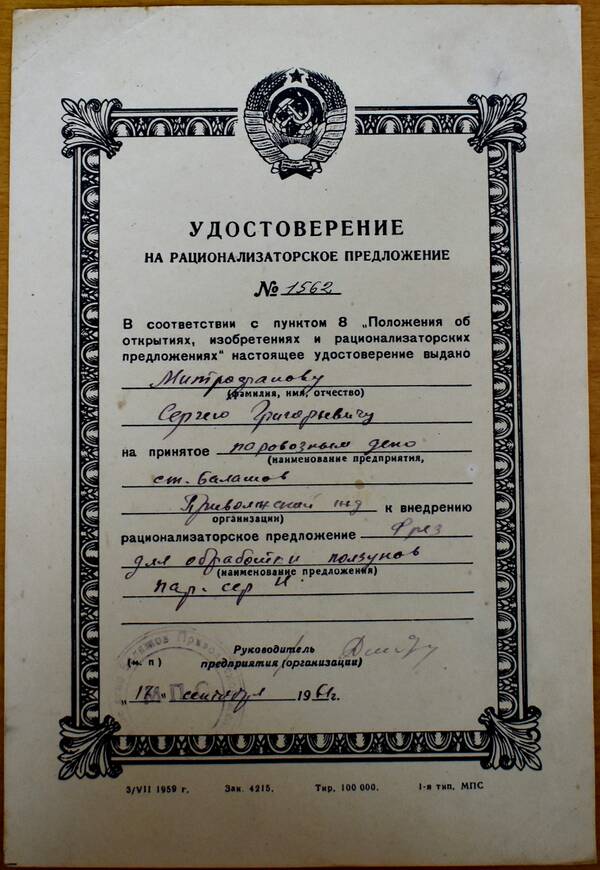 УДОСТОВЕРЕНИЕ
НА РАЦИОНАЛИЗАТОРСКОЕ ПРЕДЛОЖЕНИЕ
№ 1562
В соответствии с пунктом 8 „Положения об
открытиях, изобретениях и рационализаторских
предложениях" настоящее удостоверение выдано
Митрофанову
(фамилия, имя, отчество)
Сергею Григорьевичу
на принятое паровозным депо
(наименование предприятия,
ст. Балашов
Приволжской жд к внедрению
организации)
рационализаторское предложение Фрез
для обработки ползунов
(наименование предложения)
пар. сер
Руководитель
(м. п) предприятия (организации)
„ " сентября 1961г.
3/VII 1959 г. Зак. 4215. Тир. 100 000. 1-я тип. МПС